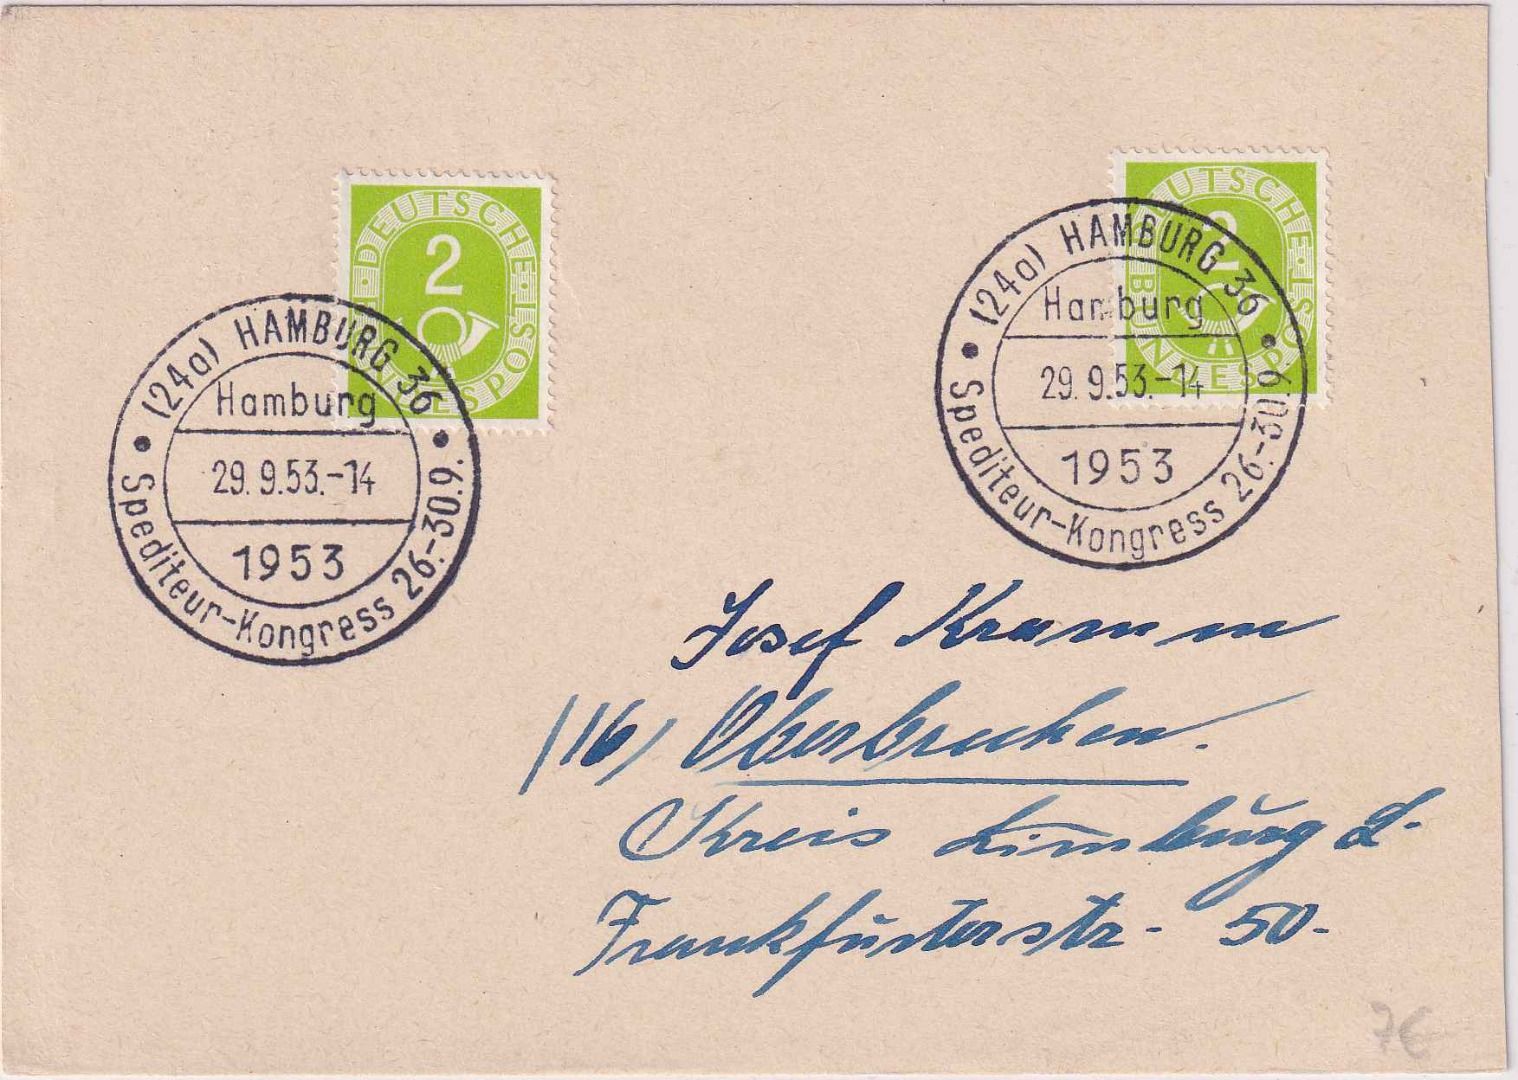 DEUTSCHE BUNDESPOST
2
DEUTSCHE BUNDESPOST
2
(24a) HAMBURG 36
Hamburg
29.9.53.-14
1953
Spediteur-Kongress 26.-30.9.
(24a) HAMBURG 36
Hamburg
29.9.53.-14
1953
Spediteur-Kongress 26.-30.9.
Josef Kramm
(16) Oberbrechen.
Kreis Limburg L.
Frankfurterstr. 50.
7€